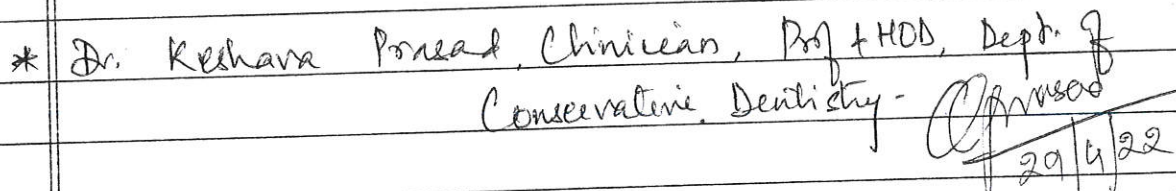 * Dr. Keshava Prasad, Clinician, Prof + HOD, Dept. of
Conservative Dentistry -
29/4/22